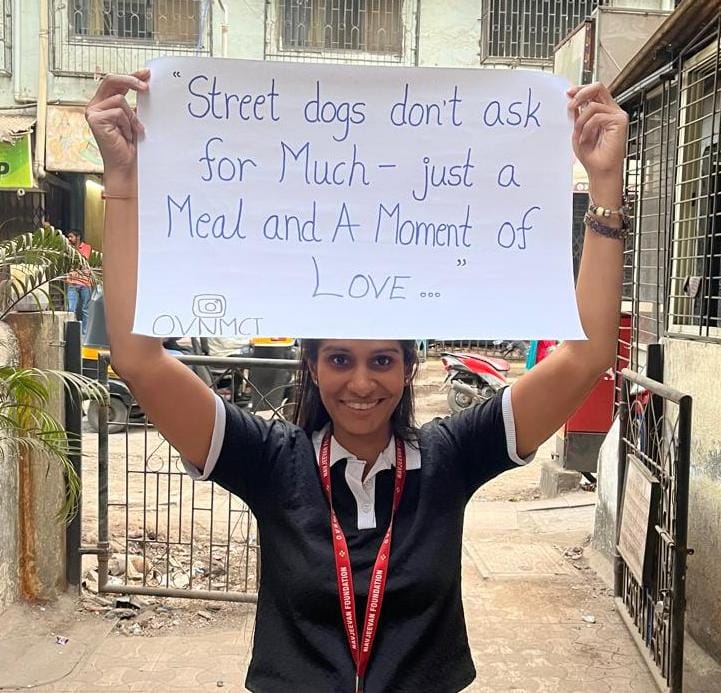 "Street dogs don't ask
for Much - just a
Meal and A Moment of
LOVE ..."
OVNMCT
NAVJEEVAN FOUNDATION
NAVJEEVAN FOUNDATION